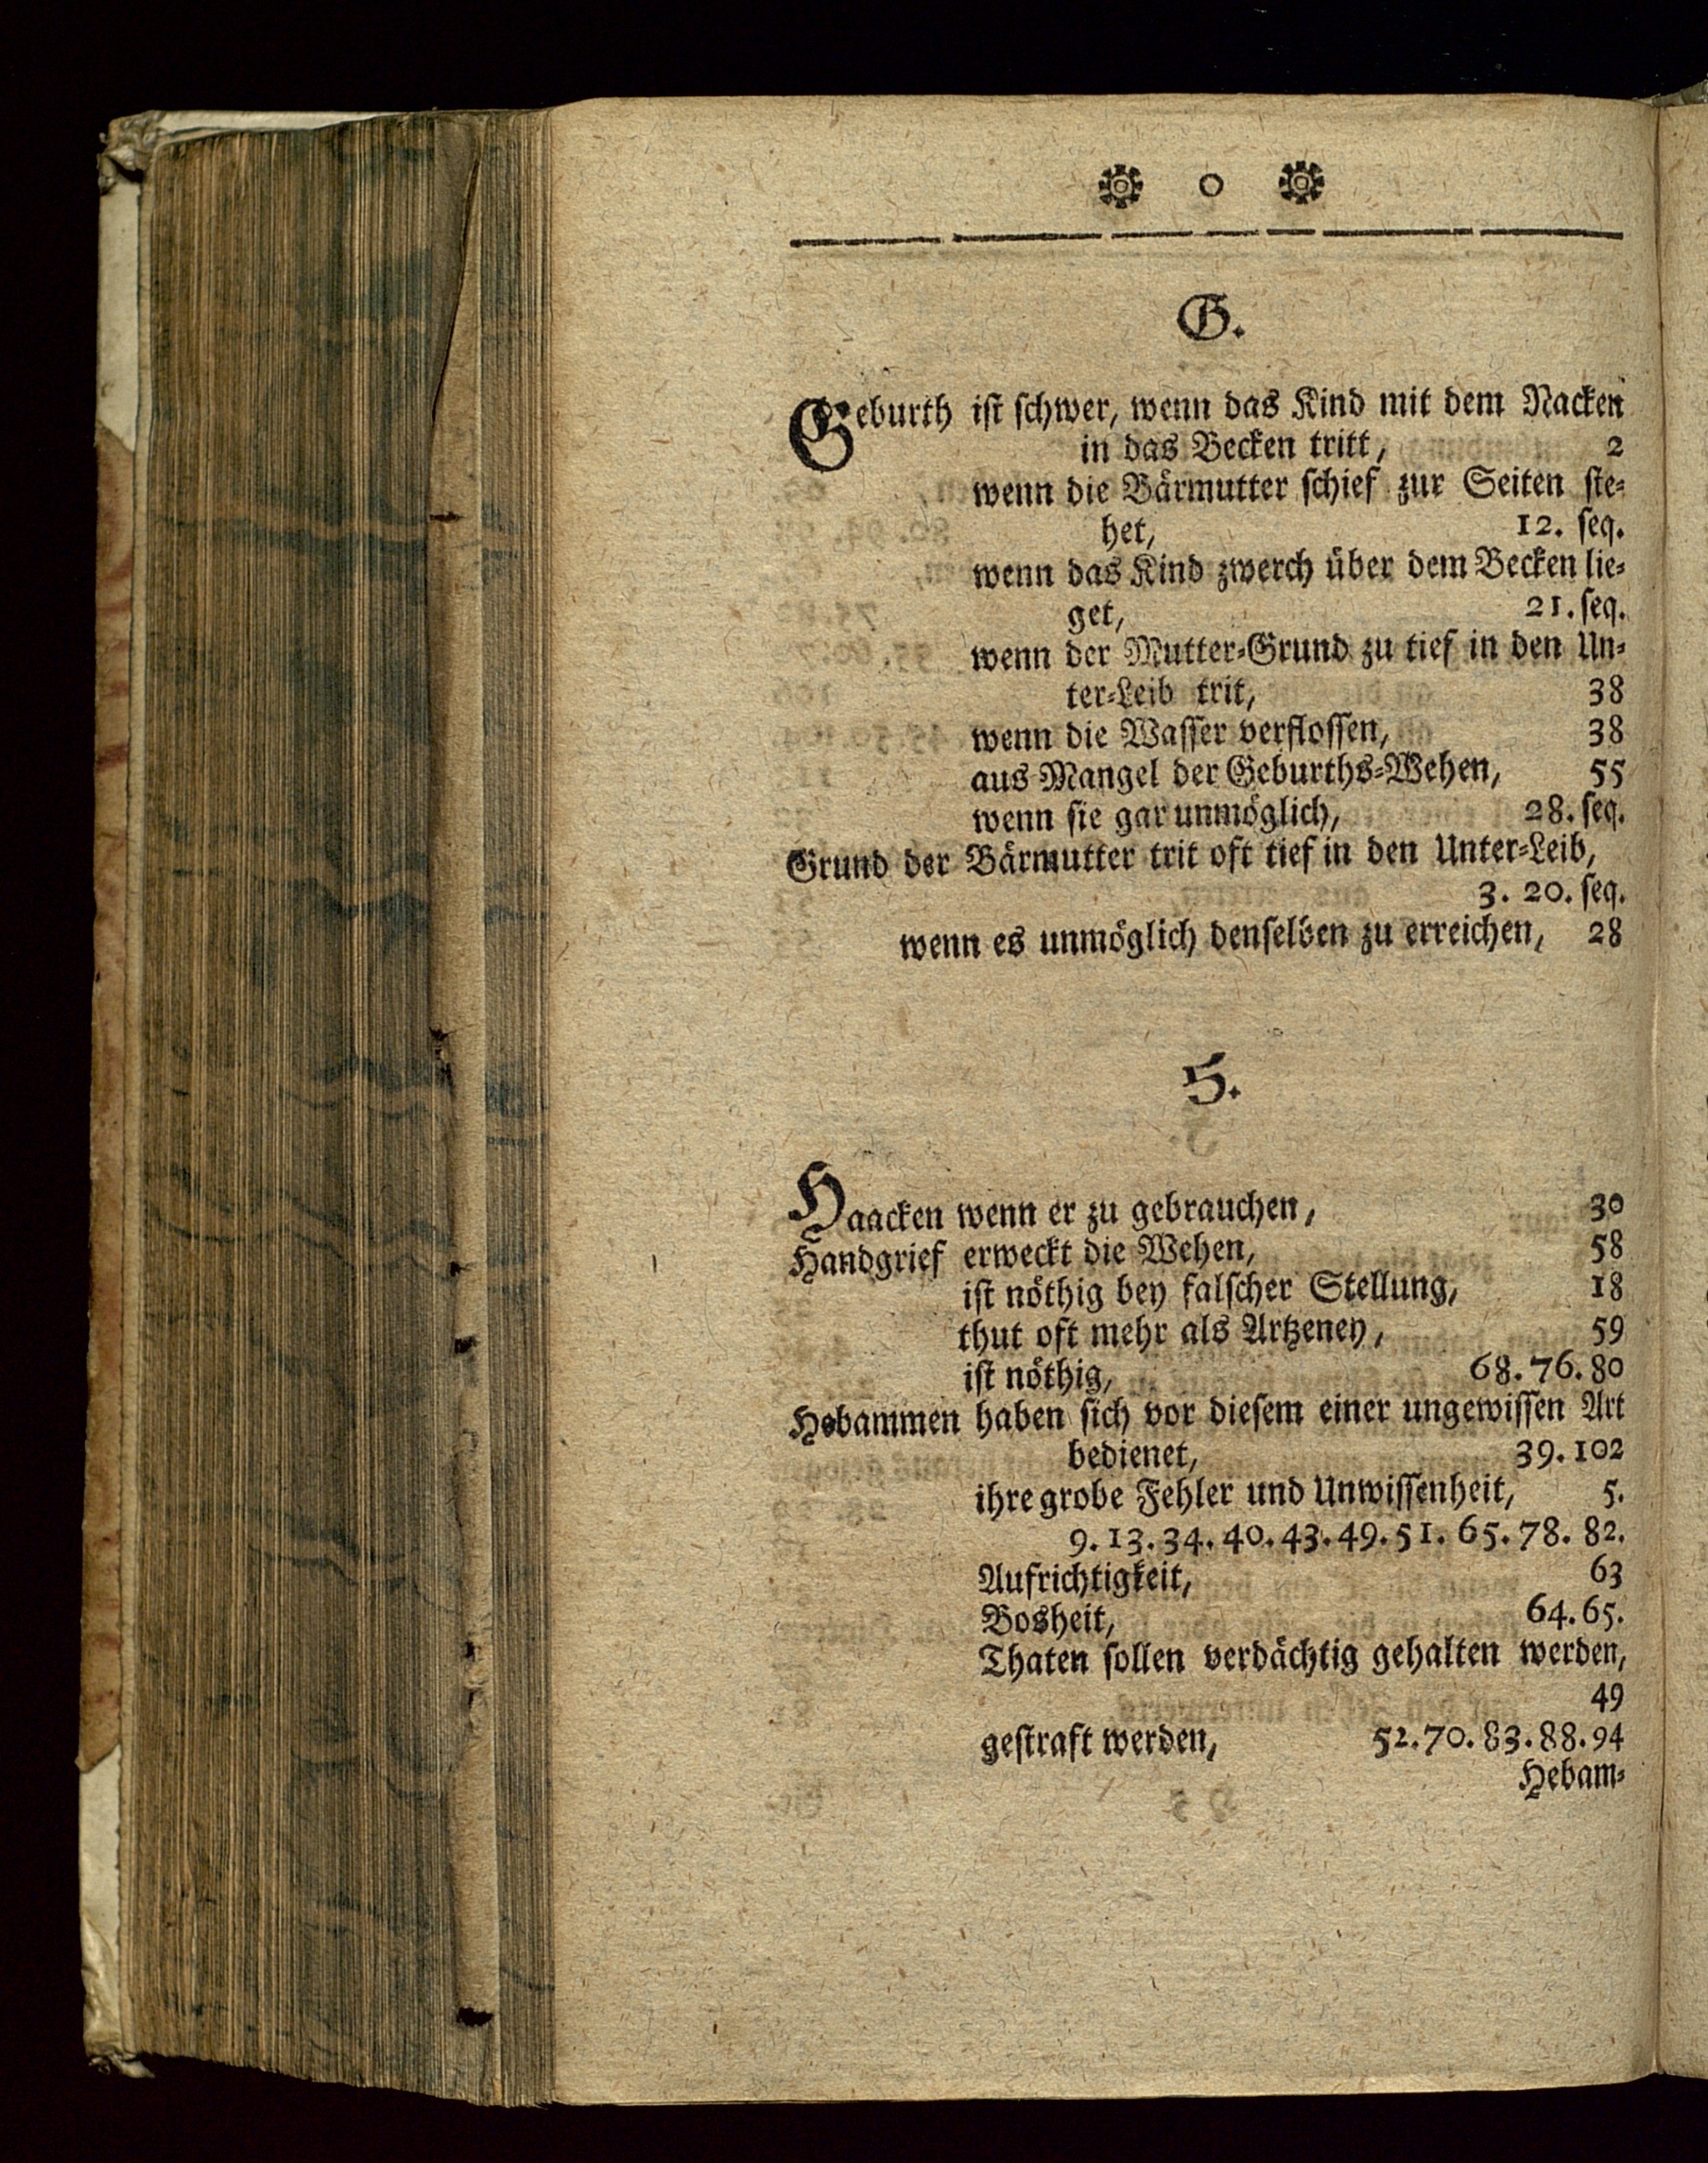 o
G.
Geburth ist schwer, wenn das Kind mit dem Nacken
in das Becken tritt, 2
wenn die Bärmutter schief zur Seiten ste-
het, 12. seq.
wenn das Kind zwerch über dem Becken lie-
get, 21. seq.
wenn der Mutter-Grund zu tief in den Un-
ter-Leib trit, 38
wenn die Wasser verflossen, 38
aus Mangel der Geburths-Wehen, 55
wenn sie gar unmöglich, 28. seq.
Grund der Bärmutter trit oft tief in den Unter-Leib,
3. 20. seq.
wenn es unmöglich denselben zu erreichen, 28
H.
Haacken wenn er zu gebrauchen, 30
Handgrief erweckt die Wehen, 58
ist nöthig bey falscher Stellung, 18
thut oft mehr als Artzeney, 59
ist nöthig, 68. 76. 80
Hebammen haben sich vor diesem einer ungewissen Art
bedienet, 39. 102
ihre grobe Fehler und Unwissenheit, 5.
9. 13. 34. 40. 43. 49. 51. 65. 78. 82.
Aufrichtigkeit, 63
Bosheit, 64. 65.
Thaten sollen verdächtig gehalten werden,
49
gestraft werden, 52. 70. 83. 88. 94
Hebam-